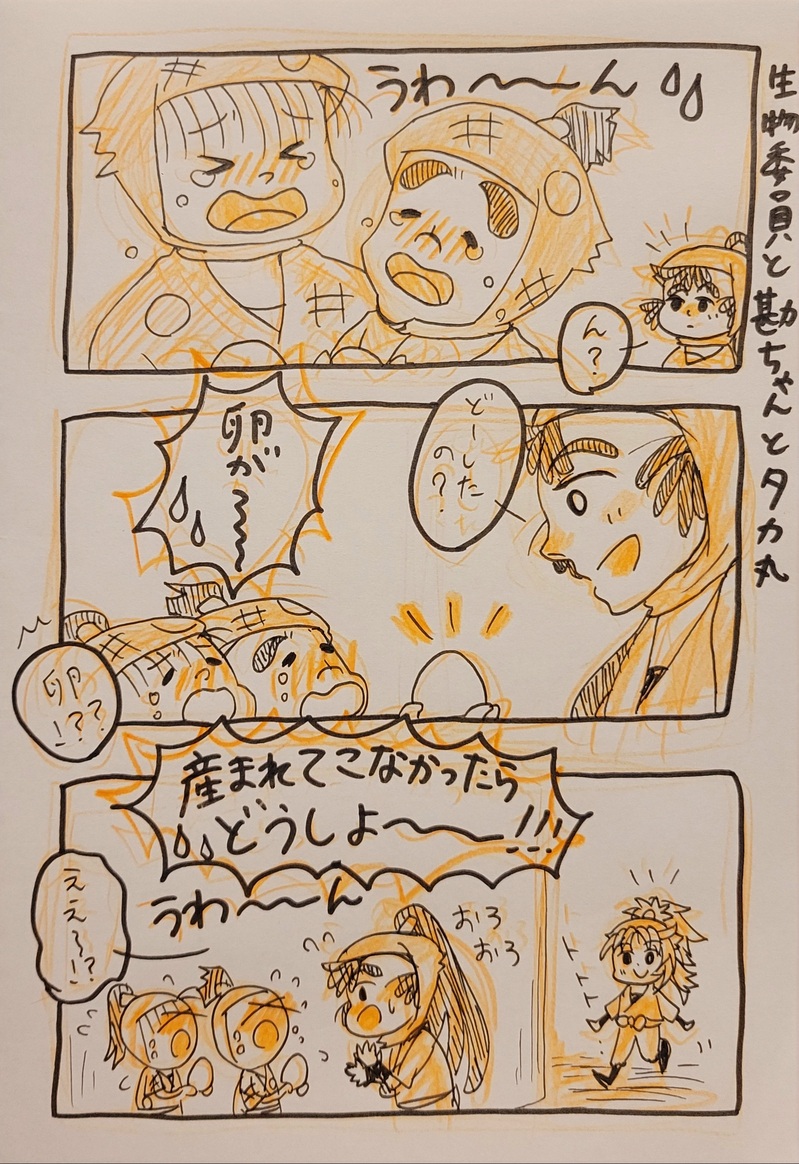 生物委員と勘ちゃんとタカ丸
うわ〜〜ん
ん?
どーした
の?
卵
が〜〜〜
卵
!??
産まれてこなかったら
どうしよ〜〜〜!!!
うわ〜〜ん
ええ〜!?
おろ
おろ
トトト